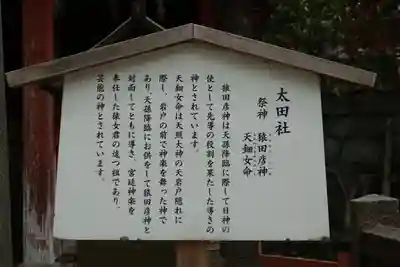 太田社
祭神　猿田彦神
天細女命
猿田彦神は天孫降臨に際して日神の
使として先導の役割を果たした導きの
神とされています。
天細女命は天照大神の天岩戸隠れに
際し、岩戸の前で神楽を舞った神で
あり、天孫降臨にお供をして猿田彦神と
対面してともに導き、宮廷神楽を
奉仕した猿女君の遠つ祖であり、
芸能の神とされています。